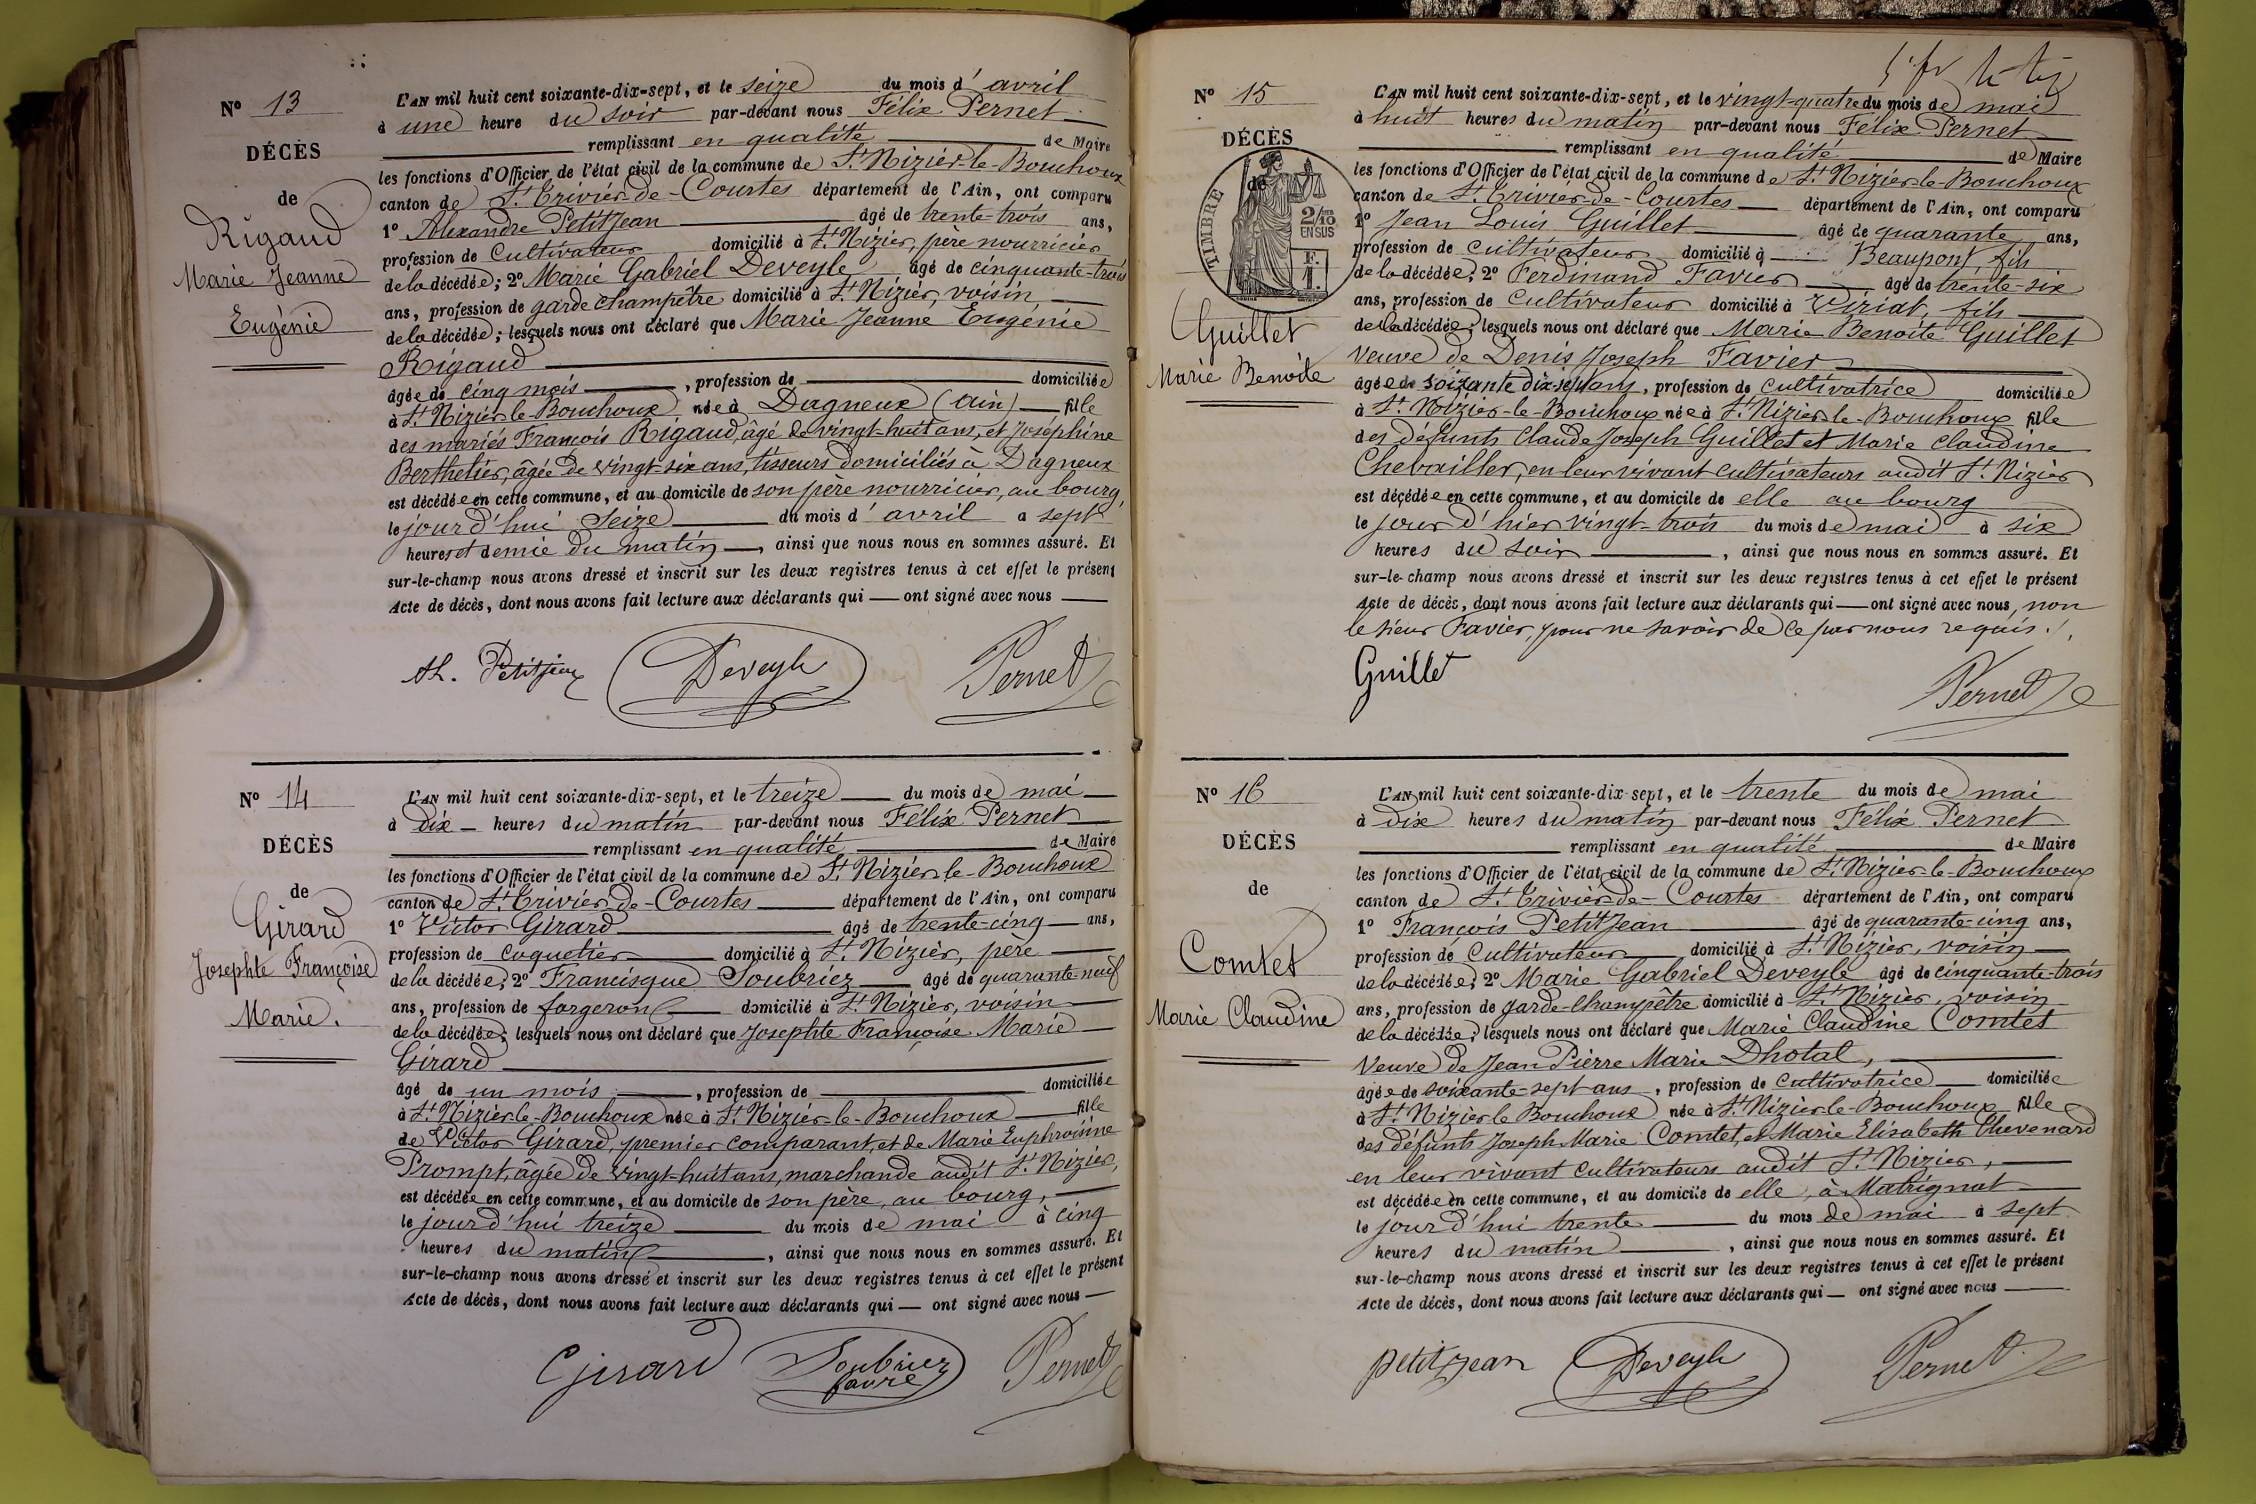 N° 13
DÉCÈS
de
Rigaud
Marie Jeanne
Eugénie
L'AN mil huit cent soixante-dix-sept, et le seize du mois d'avril
à une heure du soir par-devant nous Félix Pernet
remplissant en qualité de Maire
les fonctions d'Officier de l'état civil de la commune de St Nizier-le-Bouchoux
canton de St Trivier-de-Courtes département de l'Ain, ont comparu
1° Alexandre Petitjean âgé de trente-trois ans,
profession de Cultivateur domicilié à St Nizier, père nourricier
de la décédée; 2° Marie Gabriel Deveyle âgé de cinquante-trois
ans, profession de garde champêtre domicilié à St Nizier, voisin,
de la décédée; lesquels nous ont déclaré que Marie Jeanne Eugénie
Rigaud
âgée de cinq mois, profession de domiciliée
à St Nizier-le-Bouchoux, née à Dagneux (Ain) fille
des mariés François Rigaud, âgé de vingt-huit ans, et Joséphine
Berthelier, âgée de vingt-six ans, tisseurs domiciliés à Dagneux
est décédée en cette commune, et au domicile de son père nourricier, au bourg,
le jourd'hui seize du mois d'avril à sept
heures et demie du matin, ainsi que nous nous en sommes assuré. Et
sur-le-champ nous avons dressé et inscrit sur les deux registres tenus à cet effet le présent
Acte de décès, dont nous avons fait lecture aux déclarants qui ont signé avec nous
Al. Petitjean Deveyle Pernet
N° 14
DÉCÈS
de
Girard
Josephte Françoise
Marie.
L'AN mil huit cent soixante-dix-sept, et le treize du mois de mai
à dix heures du matin par-devant nous Félix Pernet
remplissant en qualité de Maire
les fonctions d'Officier de l'état civil de la commune de St Nizier-le-Bouchoux
canton de St Trivier-de-Courtes département de l'Ain, ont comparu
1° Victor Girard âgé de trente-cinq ans,
profession de coquetier domicilié à St Nizier, père
de la décédée; 2° Francisque Soubriez âgé de quarante-neuf
ans, profession de forgeron domicilié à St Nizier, voisin
de la décédée; lesquels nous ont déclaré que Josephte Françoise Marie
Girard
âgé de un mois, profession de domiciliée
à St Nizier-le-Bouchoux née à St Nizier-le-Bouchoux fille
de Victor Girard, premier comparant, et de Marie Euphroisine
Prompt, âgée de vingt-huit ans, marchande audit St Nizier,
est décédée en cette commune, et au domicile de son père, au bourg,
le jourd'hui treize du mois de mai à cinq
heures du matin, ainsi que nous nous en sommes assuré. Et
sur-le-champ nous avons dressé et inscrit sur les deux registres tenus à cet effet le présent
Acte de décès, dont nous avons fait lecture aux déclarants qui ont signé avec nous
Girard Soubriez favre Pernet
N° 15
DÉCÈS
de
TIMBRE
2/10
EN SUS
F.
1.
Guillet
Marie Benoite
L'AN mil huit cent soixante-dix-sept, et le vingt-quatre du mois de mai
à huit heures du matin par-devant nous Félix Pernet
remplissant en qualité de Maire
les fonctions d'Officier de l'état civil de la commune de St Nizier-le-Bouchoux
canton de St Trivier-de-Courtes département de l'Ain, ont comparu
1° Jean Louis Guillet âgé de quarante ans,
profession de cultivateur domicilié à Beaupont, fils
de la décédée; 2° Ferdinand Favier âgé de trente-six
ans, profession de Cultivateur domicilié à Viriat, fils
de la décédée; lesquels nous ont déclaré que Marie Benoite Guillet
Veuve de Denis Joseph Favier
âgée de soixante dix-sept ans, profession de cultivatrice domiciliée
à St Nizier-le-Bouchoux née à St Nizier-le-Bouchoux fille
des défunts Claude Joseph Guillet et Marie Claudine
Chevailler, en leur vivant cultivateurs audit St Nizier
est décédée en cette commune, et au domicile de elle au bourg
le jour d'hier vingt-trois du mois de mai à six
heures du soir, ainsi que nous nous en sommes assuré. Et
sur-le-champ nous avons dressé et inscrit sur les deux registres tenus à cet effet le présent
Acte de décès, dont nous avons fait lecture aux déclarants qui ont signé avec nous, non
le sieur Favier, pour ne savoir de ce par nous requis.
Guillet Pernet
N° 16
DÉCÈS
de
Comtet
Marie Claudine
L'AN mil huit cent soixante-dix-sept, et le trente du mois de mai
à dix heures du matin par-devant nous Félix Pernet
remplissant en qualité de Maire
les fonctions d'Officier de l'état civil de la commune de St Nizier-le-Bouchoux
canton de St Trivier-de-Courtes département de l'Ain, ont comparu
1° François Petitjean âgé de quarante-cinq ans,
profession de Cultivateur domicilié à St Nizier, voisin
de la décédée; 2° Marie Gabriel Deveyle âgé de cinquante-trois
ans, profession de garde-champêtre domicilié à St Nizier, voisin
de la décédée; lesquels nous ont déclaré que Marie Claudine Comtet
Veuve de Jean Pierre Marie Dhotal,
âgée de soixante-sept ans, profession de Cultivatrice domiciliée
à St Nizier le Bouchoux née à St Nizier-le-Bouchoux fille
des défunts Joseph Marie Comtet, et Marie Elisabeth Thevenard
en leur vivant cultivateurs audit St Nizier,
est décédée en cette commune, et au domicile de elle, à Matrignat
le jourd'hui trente du mois de mai à sept
heures du matin, ainsi que nous nous en sommes assuré. Et
sur-le-champ nous avons dressé et inscrit sur les deux registres tenus à cet effet le présent
Acte de décès, dont nous avons fait lecture aux déclarants qui ont signé avec nous
petitjean Deveyle Pernet